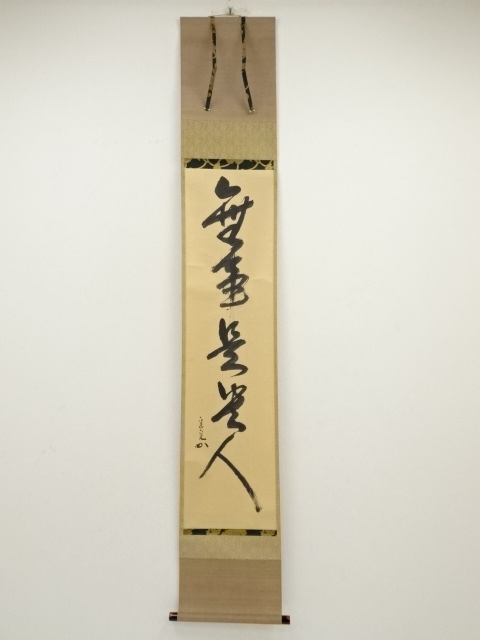 無事是貴人